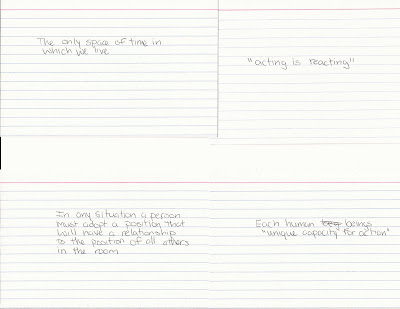 The only space of time in
which we live
"acting is reacting"
In any situation a person
must adopt a position that
will have a relationship
to the position of all others
in the room
Each human beings
"unique capacity for action"